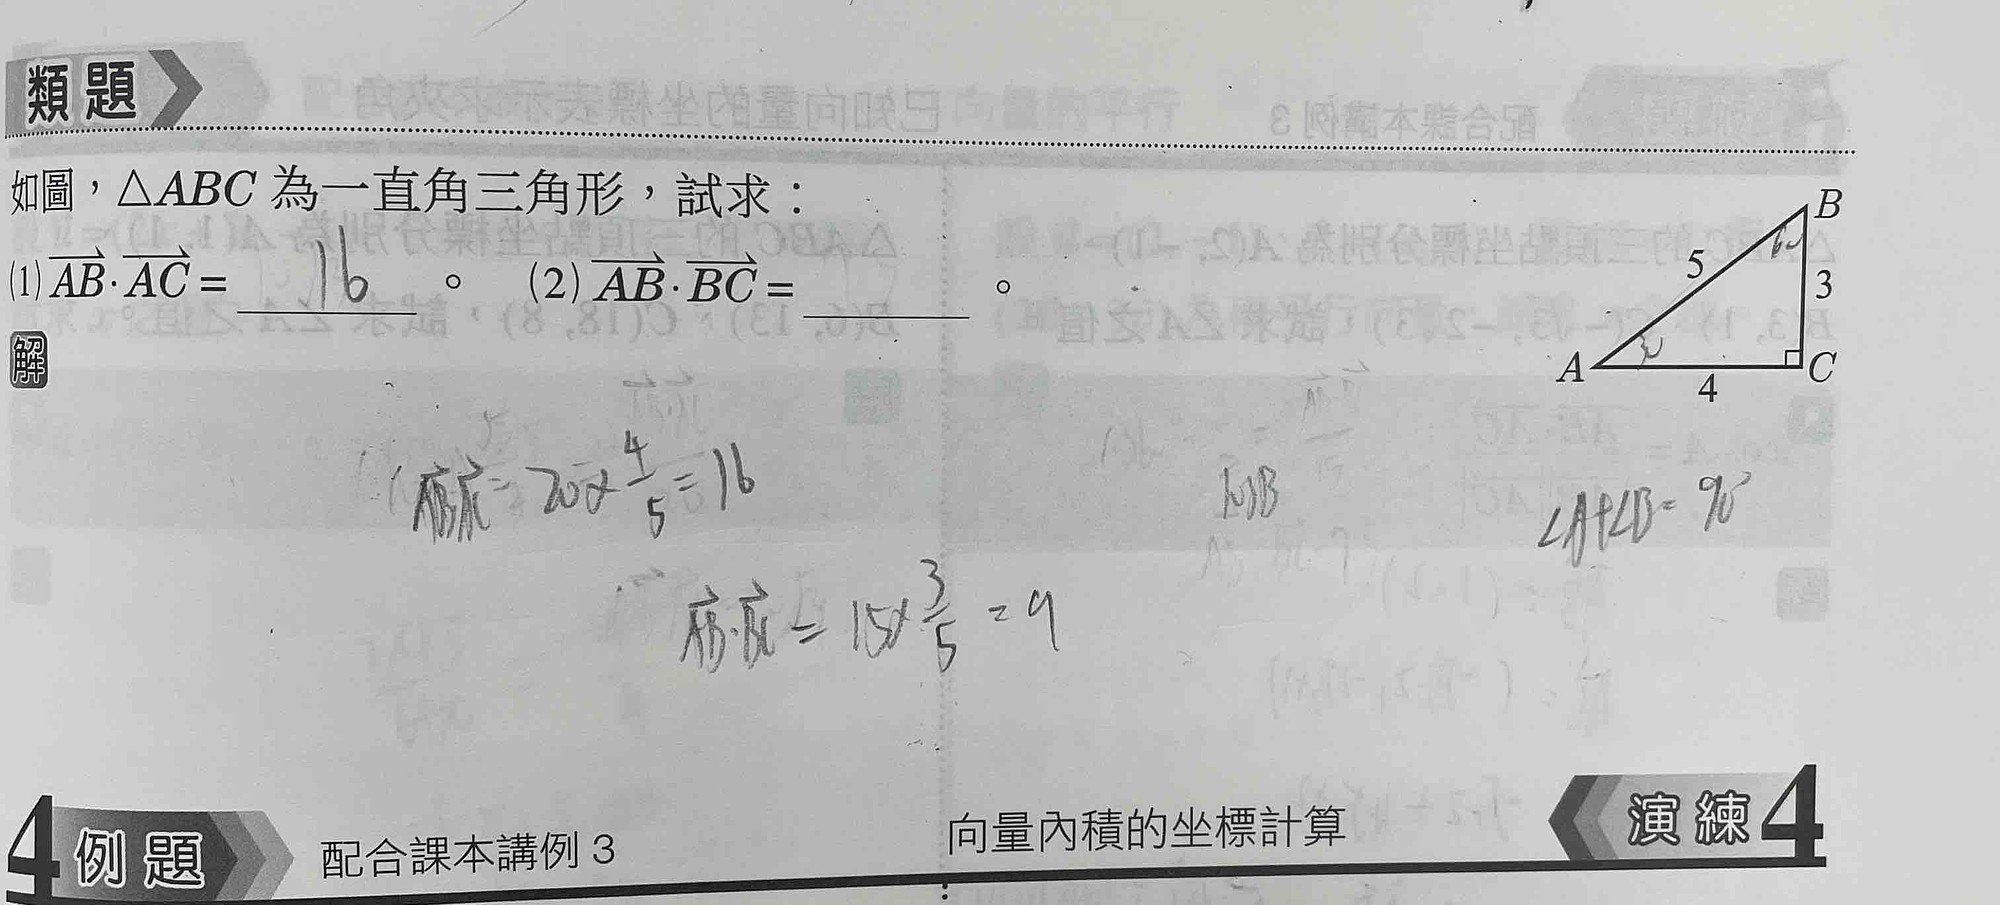 類題
如圖，△ABC 為一直角三角形，試求：
(1) AB·AC = 16 。 (2) AB·BC = 。
B
5
3
A
C
4
解
AB·AC = 20 × 4/5 = 16
∠A+∠B = 90°
AB·BC = 15 × 3/5 = 9
4 例題 配合課本講例 3 向量內積的坐標計算 演練 4